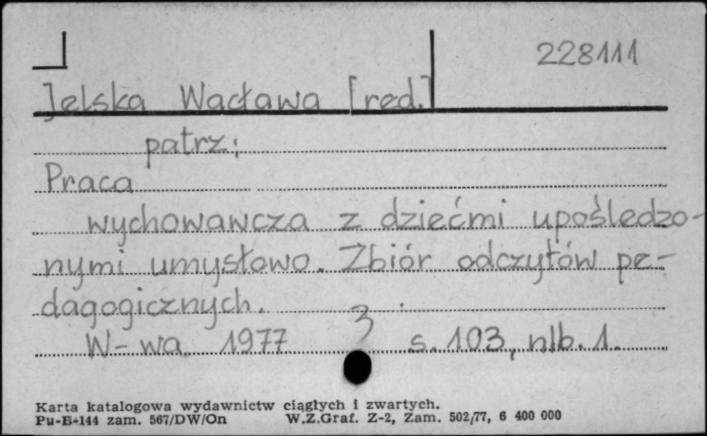 228111
Jelska Wacława [red.]
patrz:
Praca
wychowawcza z dziećmi upośledzo-
nymi umysłowo. Zbiór odczytów pe-
dagogicznych.
W-wa 1977 s. 103, nlb. 1.
Karta katalogowa wydawnictw ciągłych i zwartych.
Pu-B-144 zam. 567/DW/On W.Z.Graf. Z-2, Zam. 502/77, 6 400 000